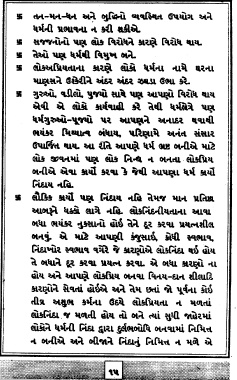 卐 તન-મન-ધન અને બુદ્ધિનો વ્યવસ્થિત ઉપયોગ અને
ધર્મની પ્રભાવના ન કરી શકીએ.
卐 સજજનોનો પણ લોક વિરોધને કારણે વિરોધ થાય.
卐 તેઓ પણ ધર્મથી વિમુખ બને.
卐 લોકઅપ્રિયતાના કારણે લોકો ધર્મના નામે ઘરના
માણસને ઉશ્કેરીને અંદર અંદર ઝઘડા ઉભા કરે.
卐 ગુરુઓ, વડીલો, પુજ્યો સાથે પણ આપણો વિરોધ થાય
એવી એ લોકો કાર્યવાહી કરે તેથી ધર્મક્ષેત્રે પણ
ધર્મગુરુઓ-પૂજ્યો પર આપણને અનાદર થવાથી
ભયંકર મિથ્યાત્વ બંધાય, પરિણામે અનંત સંસાર
ઉપાર્જિત થાય. આ રીતે આપણે ધર્મ ભ્રષ્ટ બનીએ માટે
લોક જીવનમાં પણ લોક નિન્દ્ય ન બનતા લોકપ્રિય
બનીએ એવા કાર્યો કરવા કે જેથી આપણા ધર્મ કાર્યો
નિંદાય નહિ.
卐 લૌકિક કાર્યો પણ નિંદાય નહિ તેમજ માન પ્રતિષ્ઠા
આબરૂને ધક્કો લાગે નહિ. લોકનિંદનીયતાના આવા
બધા ભયંકર નુકસાનો હોઈ તેને દૂર કરવા પ્રયત્નશીલ
બનવું. એ માટે આપણી કંજુસાઈ, ક્રોધી સ્વભાવ,
નિંદાખોર સ્વભાવ વગેરે જે કારણોએ લોકનિંદા થઈ હોય
તે બધાને દૂર કરવા પ્રયત્ન કરવા. એ બધા કારણો ના
હોય અને આપણે લોકપ્રિય બનવા વિનય-દાન શીલાદિ
કારણોને સેવતાં હોઈએ અને તેમ છતાં જો પૂર્વના કોઈ
તીવ્ર અશુભ કર્મના ઉદયે લોકપ્રિયતા ન મળતાં
લોકનિંદા જ મળતી હોય તો બને ત્યાં સુધી જાહેરમાં
લોકોને ધર્મની નિંદા દ્વારા દુર્લભબોધિ બનવામાં નિમિત્ત
ન બનીએ અને બીજાને નિંદાનું નિમિત્ત ન મળે એ
૧૫